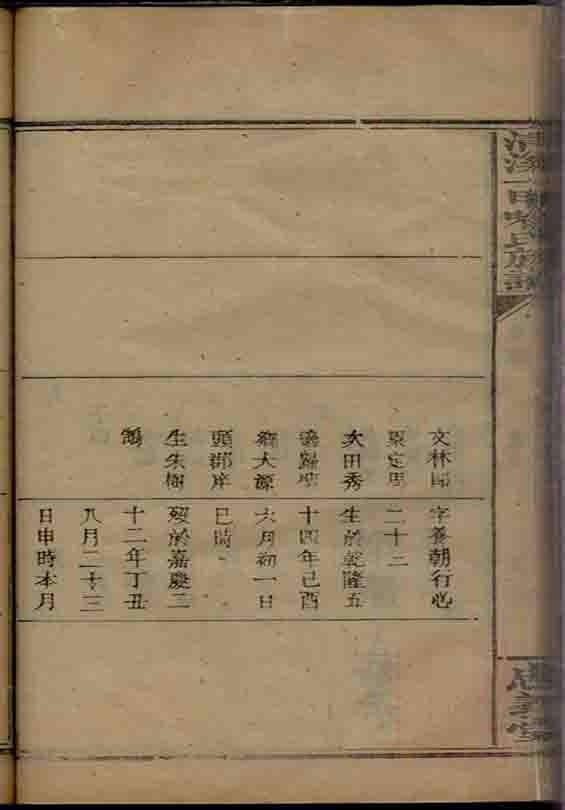 氏族譜
文林郎
定
次田秀
適歸
鄉大源
頭郡庠
生朱樹
鵠
字養朝行心
二十二
生於乾隆五
十四年己酉
六月初一日
巳時
歿於嘉慶二
十二年丁丑
八月二十三
日申時本月
堂